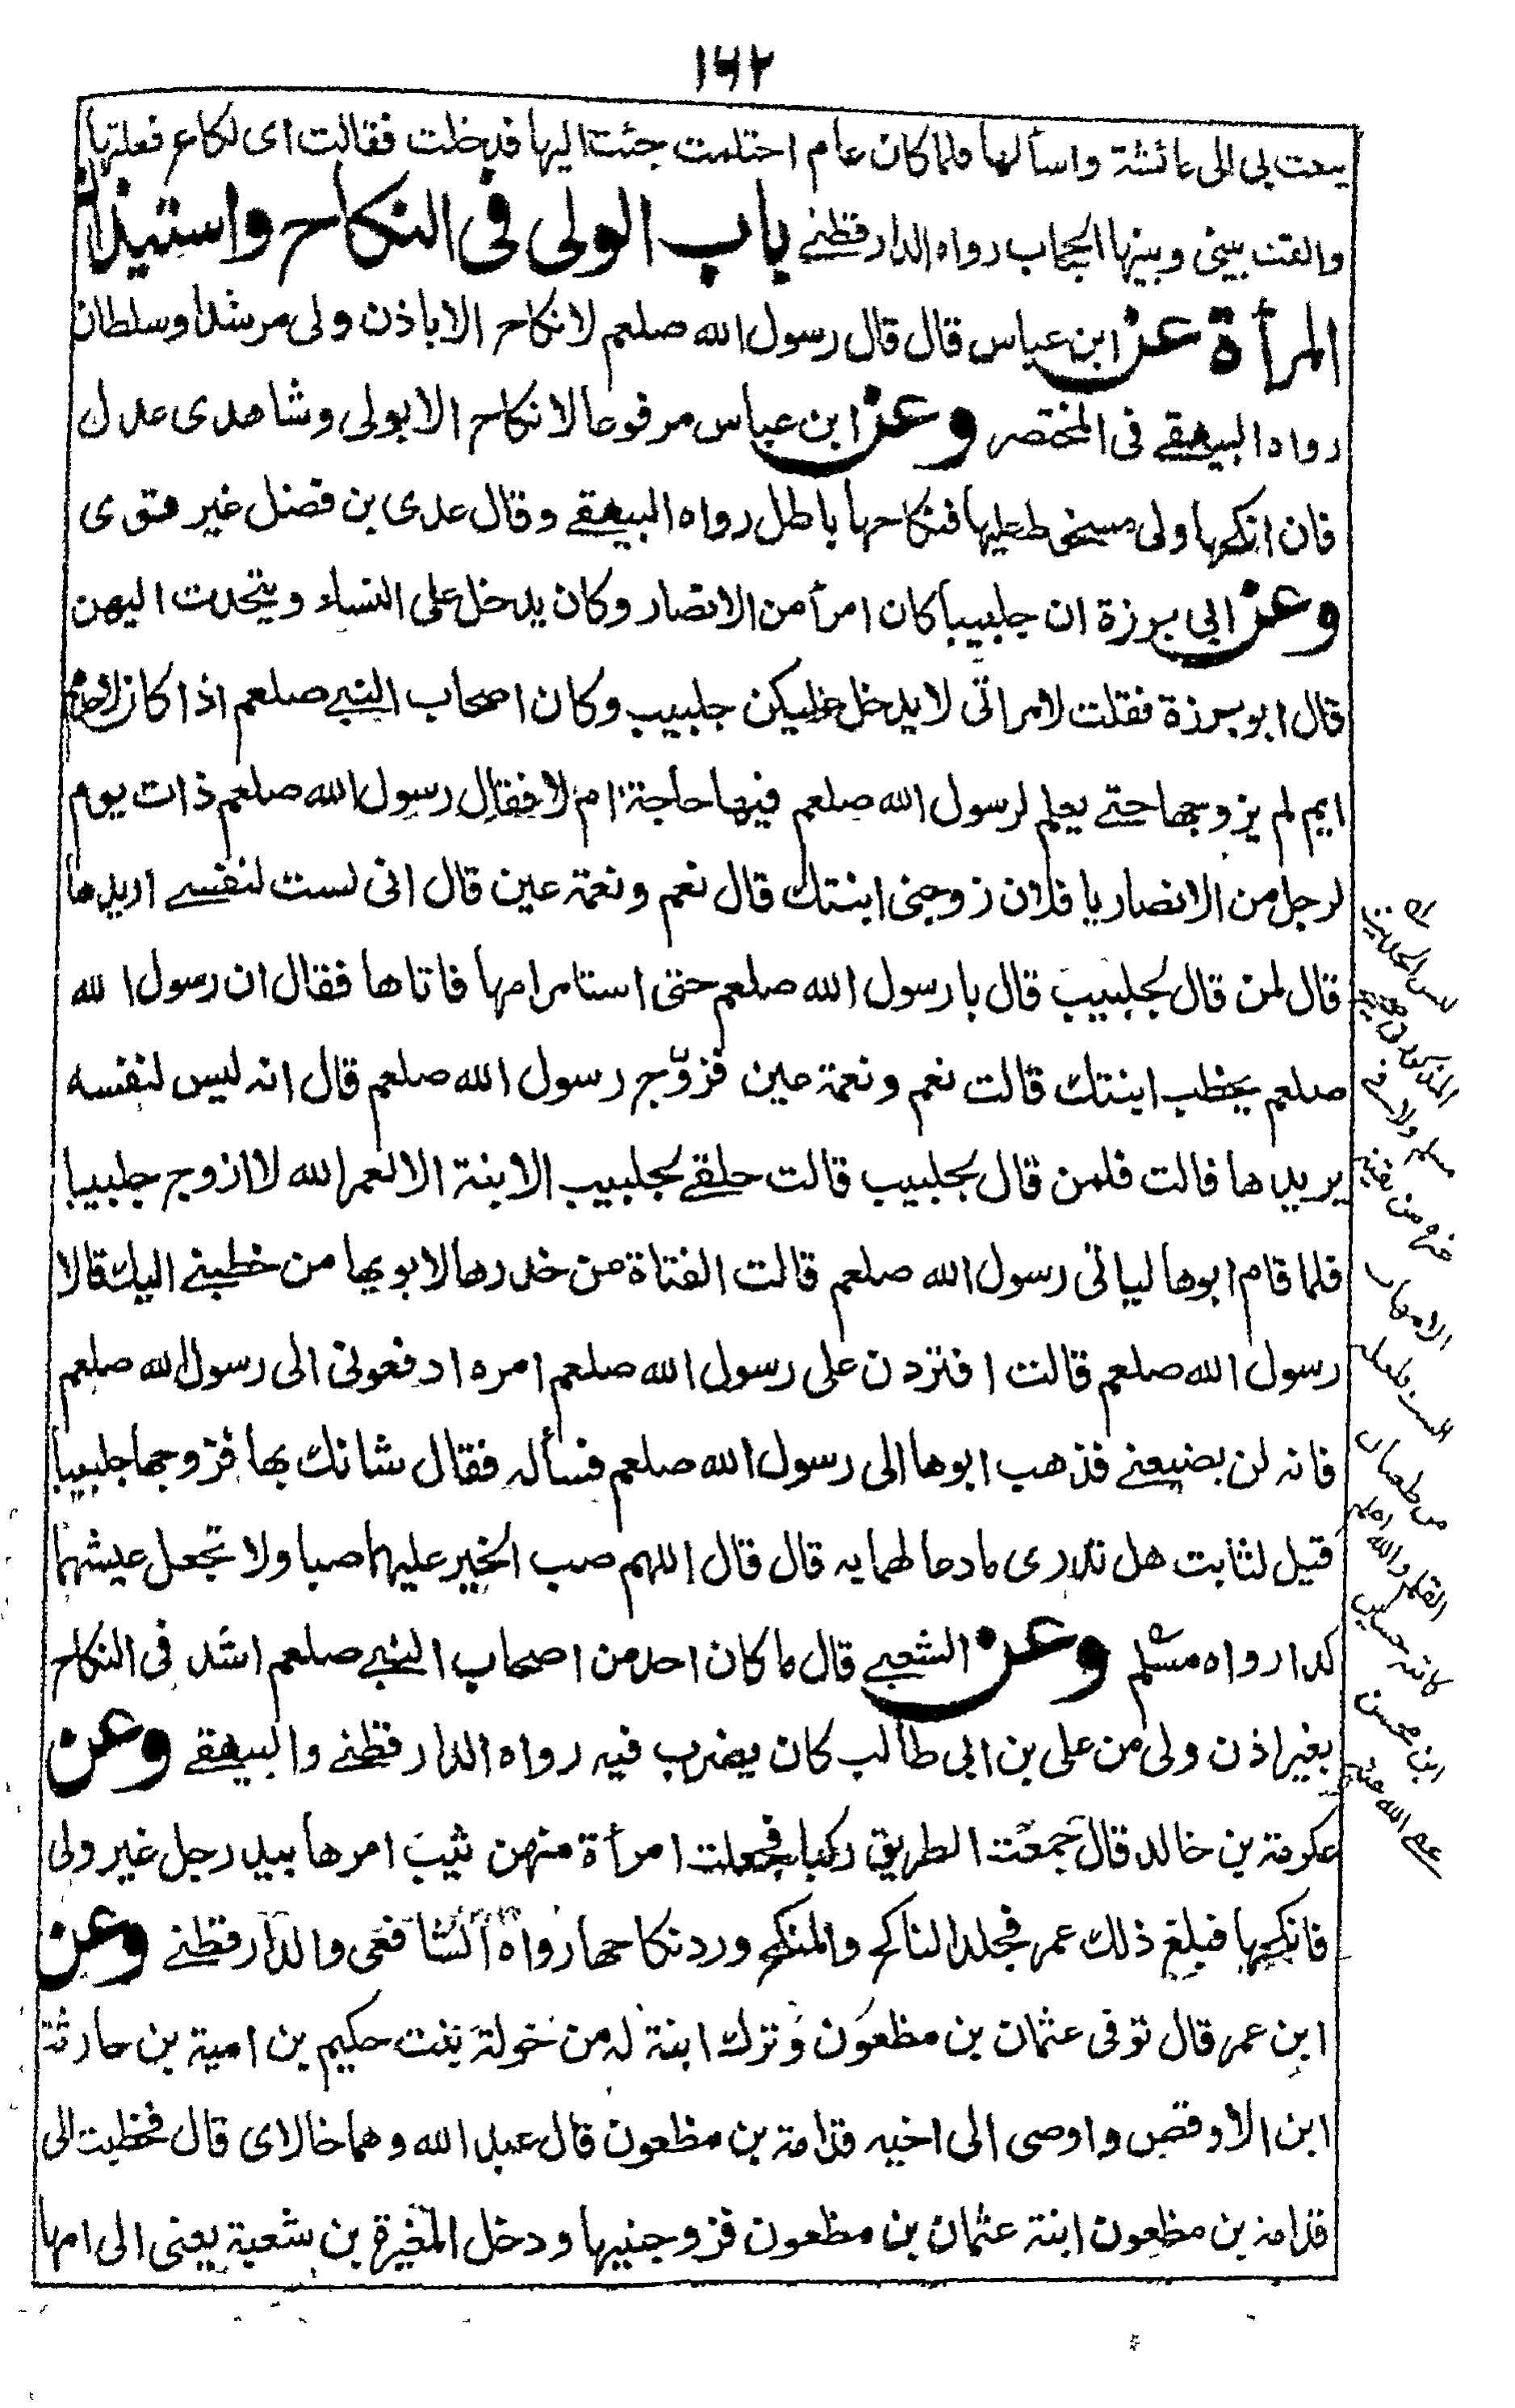 ١٦٢
يبعث بي الى عائشة واسألها فلما كان عام احتلمت جئت اليها فدخلت فقالت اى لكاع فعلتها
والقت بينى وبينها الحجاب رواه الدارقطنے باب الولى فى النكاح واستيذان
المرأة عن ابن عباس قال قال رسول الله صلعم لا نكاح الا باذن ولى مرشد او سلطان
رواه البيهقے فى المختصر وعن ابن عباس مرفوعا لا نكاح الا بولى وشاهدى عدل
فان انكحها ولى مسخوط عليها فنكاحها باطل رواه البيهقے وقال عدى بن فضل غير قوى
وعن ابي برزة ان جلبيبا كان امرأ من الانصار وكان يدخل على النساء ويتحدث اليهن
قال ابو برزة فقلت لامراتى لا يدخل عليكن جلبيب وكان اصحاب النبے صلعم اذا كان لاحدهم
ايم لم يزوجها حتے يعلم لرسول الله صلعم فيها حاجة ام لا فقال رسول الله صلعم ذات يوم
لرجل من الانصار يا فلان زوجنى ابنتك قال نعم ونعمة عين قال انى لست لنفسے اريدها
قال لمن قال لجلبيب قال يا رسول الله صلعم حتى استامر امها فاتاها فقال ان رسول الله
صلعم يخطب ابنتك قالت نعم ونعمة عين فزوّج رسول الله صلعم قال انه ليس لنفسه
يريدها قالت فلمن قال لجلبيب قالت حلقے لجلبيب الابنة الا لعمر الله لا ازوج جلبيبا
فلما قام ابوها لياتى رسول الله صلعم قالت الفتاة من خدرها لابويها من خطبنے اليك قالا
رسول الله صلعم قالت افتردن على رسول الله صلعم امره ادفعونى الى رسول الله صلعم
فانه لن يضيعنے فذهب ابوها الى رسول الله صلعم فسأله فقال شانك بها فزوجها جلبيبا
قيل لثابت هل تدرى ما دعا لهما به قال قال اللهم صب الخير عليهما صبا ولا تجعل عيشهما
كدا رواه مسلم وعن الشعبے قال ما كان احد من اصحاب النبے صلعم اشد فى النكاح
بغير اذن ولى من على بن ابى طالب كان يضرب فيه رواه الدارقطنے والبيهقے وعن
عكرمة بن خالد قال جمعت الطريق ركبا فجعلت امرأة منهن ثيب امرها بيد رجل غير ولى
فانكحها فبلغ ذلك عمر فجلد الناكح والمنكح ورد نكاحها رواه الشافعى والدارقطنے وعن
ابن عمر قال توفى عثمان بن مظعون وترك ابنة له من خولة بنت حكيم بن امية بن حارثة
ابن الاوقص واوصى الى اخيه قدامة بن مظعون قال عبد الله وهما خالاى قال فخطبت الى
قدامة بن مظعون ابنة عثمان بن مظعون فزوجنيها ودخل المغيرة بن شعبة يعنى الى امها
ليس الحديث